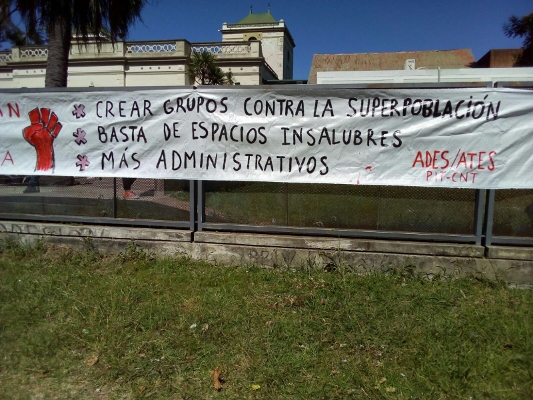 AN
A
* CREAR GRUPOS CONTRA LA SUPERPOBLACIÓN
* BASTA DE ESPACIOS INSALUBRES
* MÁS ADMINISTRATIVOS
ADES/ATES
PIT-CNT